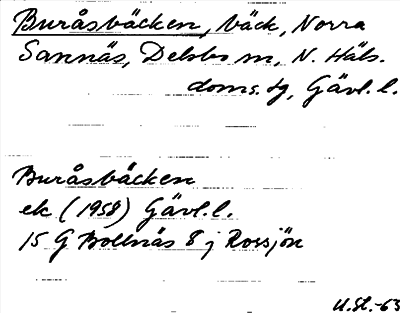 Buråsbäcken, bäck, Norra
Sannäs, Delsbo sn, N. Häls.
doms. tg, Gävl. l.
Buråsbäcken
ek (1958) Gävl. l.
15 G Bollnäs 8 j Rossjön
U.St.-63